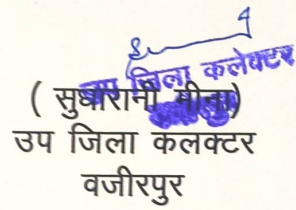 उप जिला कलेक्टर
( सुधारानी मीना)
उप जिला कलक्टर
वजीरपुर